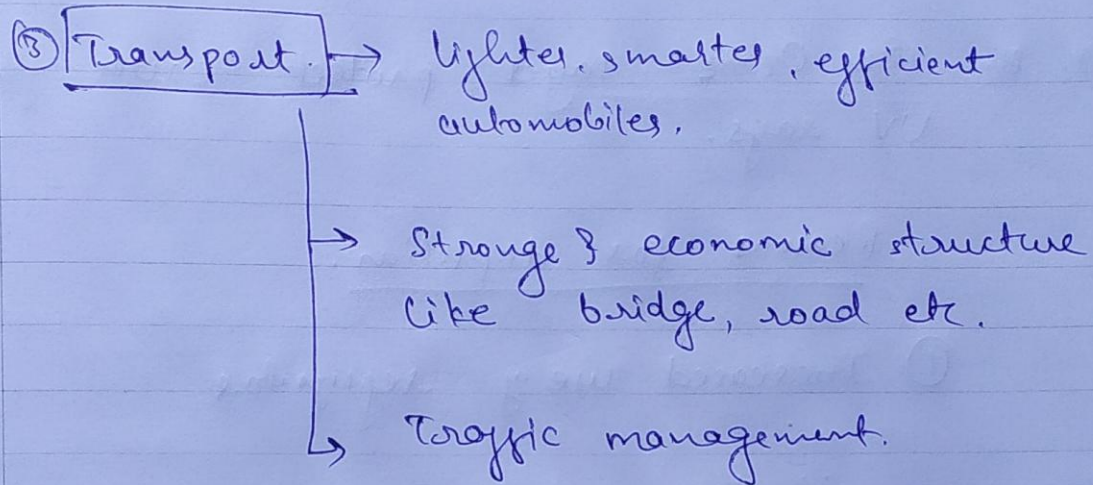 ③ Transport. → lighter, smarter, efficient
automobiles.
→ Stronge & economic structure
like bridge, road etc.
↳ Traffic management.